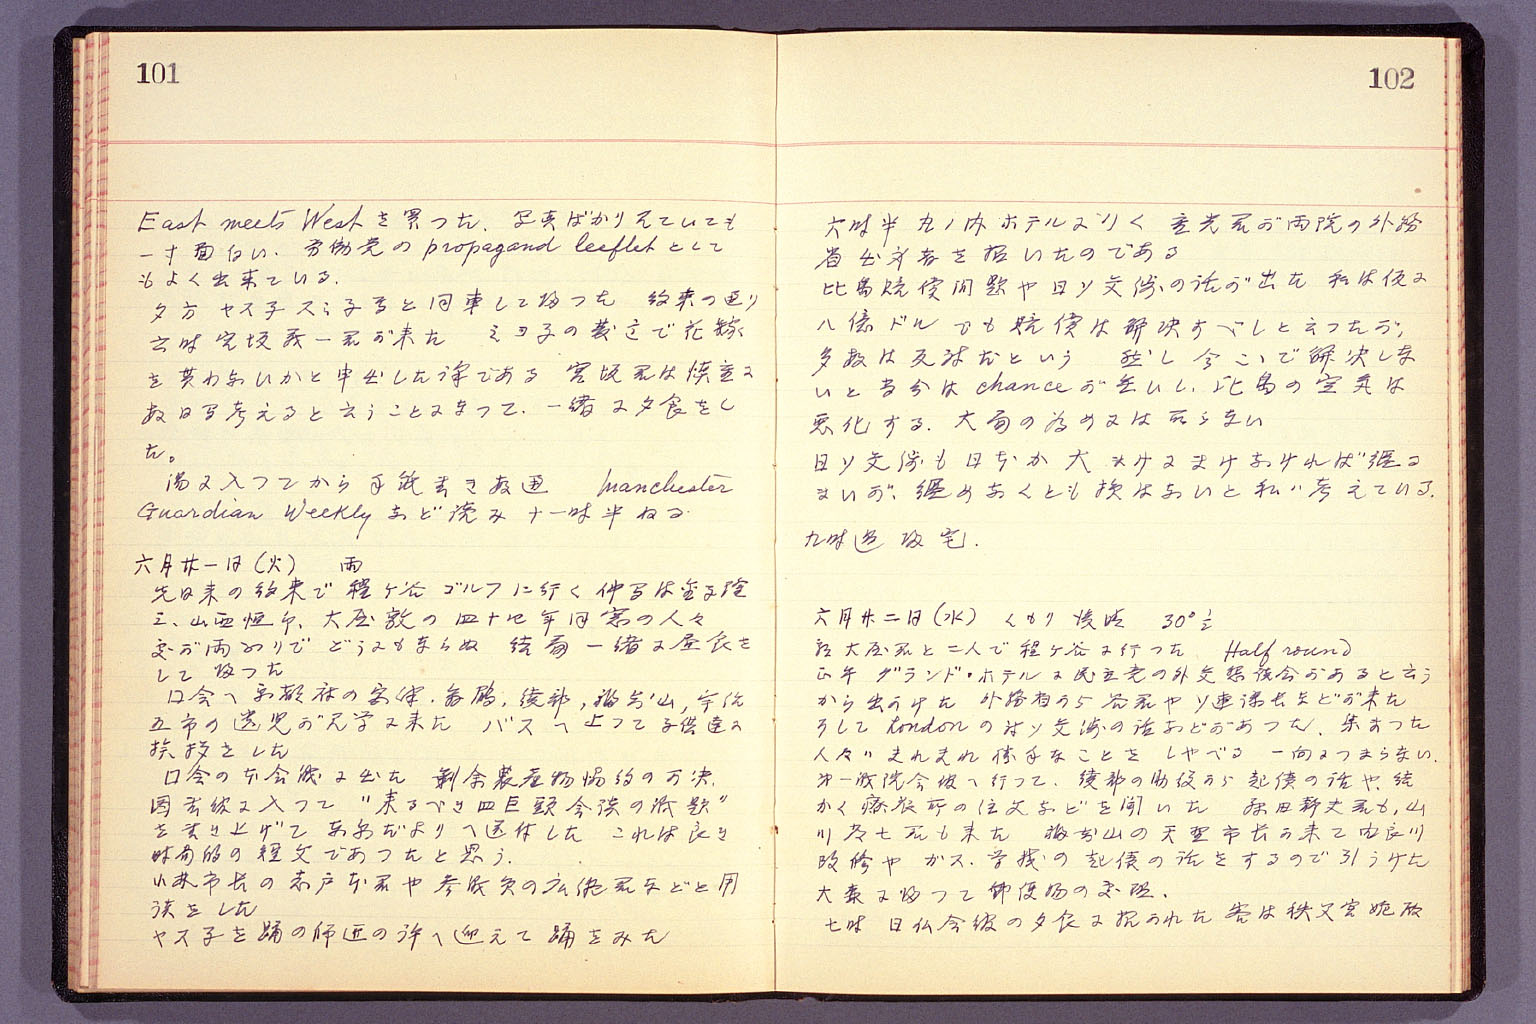 101
East meets West を買つた、写真ばかり見ていても
一寸面白い、労働党の propagand leeflet として
もよく出来ている.
夕方 ヤス子スミ子等と同車して帰つた 約束の通り
六時宮坂 一君が来た ミヨ子の で花嫁
を貰わないかと申出した訳である 宮坂君は慎重に
数日写考えると云うことになつて、一緒に夕食をし
た。
湯に入つてから手紙書き数通 Manchester
Guardian Weekly など読み十一時半ねる
六月廿一日(火) 雨
先日来の約束で程ケ谷ゴルフに行く仲間は
三、山西恒 、大屋敦の四十 年同窓の人々
だが雨ふりでどうにもならぬ 結局一緒に昼食を
して帰つた
口会へ京都 の 、舞鶴、綾部、福知山、宇治
五市の遺児が見学に来た バスへ上つて子供達に
挨拶をした
口会の本会議に出た 剰余農産物協約の可決.
図書館に入つて "来るべき四巨頭会談の議題"
を書き上げてあ だよりへ送付した これは良き
時局的の短文であつたと思う.
市長の 君や参議員の 君などと用
談をした
ヤス子を踊の師匠の許へ迎えて踊をみた
102
六時半 丸ノ内ホテルに行く 君が両院の外務
省出身者を招いたのである
比島賠償問題や日ソ交渉の話が出た 私は仮に
八億ドルでも賠償は解決すべしと云つたが、
多数は反対だという 然し今こゝで解決しな
いと当分は chance が無いし、比島の空気は
悪化する. 大局の為めには取らない
日ソ交渉も日本が大まけにまけなければ纏る
まいが、纏めなくとも損はないと私ハ考えている.
九時過帰宅.
六月廿二日(水) くもり後晴 30°½
大屋君と二人で程ケ谷に行つた Half round
正午 グランド・ホテルに民主党の外交懇談会があると云う
から出かけた 外務省から 君やソ連課長などが来た
そして London の対ソ交渉の話などがあつた. 集まつた
人々ハまれまれ勝手なことをしやべる 一向につまらない.
第一議院会館へ行つて、綾部の助役から起債の話や、結
かく療養所の注文などを聞いた 君も、山
川 七君も来た 福知山の 市長が来て由良川
改修や ガス、学校の起債の話をするので引うけた
大森に帰つて郵便物の処理.
七時 日仏会館の夕食に招かれた 客は秩父宮妃殿